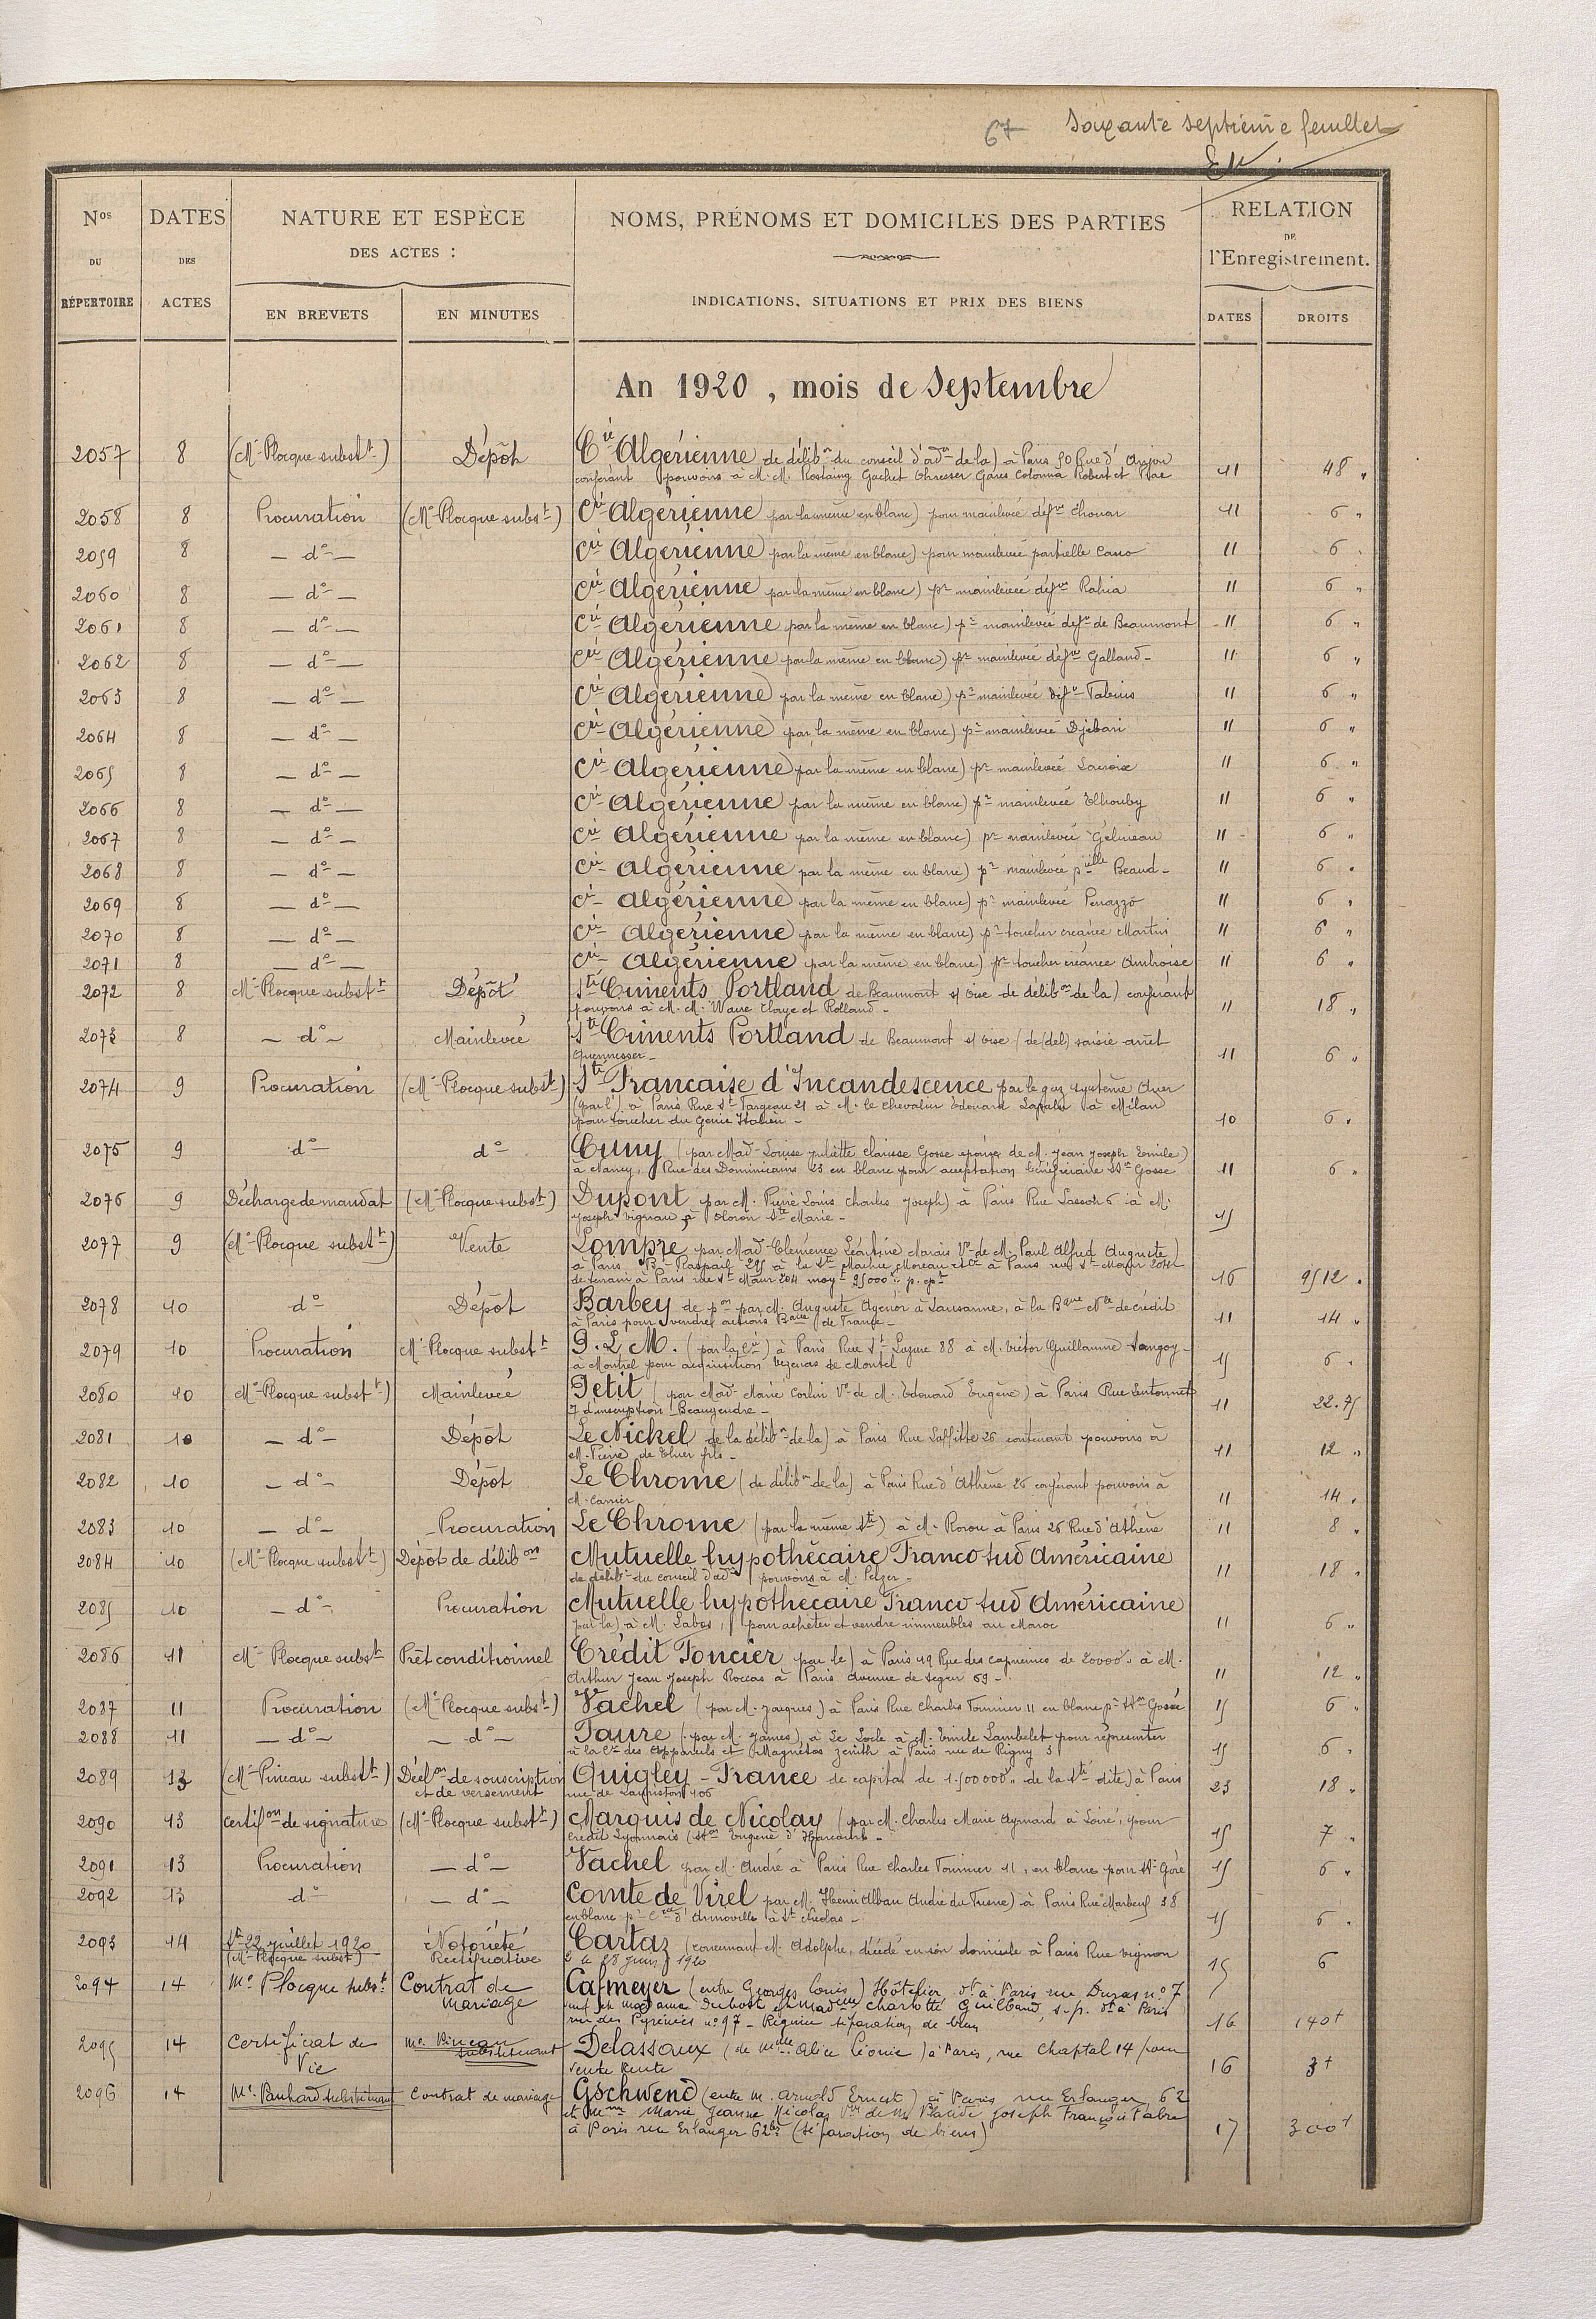 67 Soixante septième feuillet
Nos DU RÉPERTOIRE
DATES DES ACTES
NATURE ET ESPÈCE DES ACTES :
EN BREVETS
EN MINUTES
NOMS, PRÉNOMS ET DOMICILES DES PARTIES
INDICATIONS, SITUATIONS ET PRIX DES BIENS
RELATION DE l'Enregistrement.
DATES
DROITS
An 1920, mois de Septembre
2057 8 (Me Plocque substt) Dépôt Cie Algérienne de délibon du conseil d'adon de la) à Paris 50 Rue d'Anjou 11 48 "
conférant pouvoirs à M.M. Rostaing Gachet Garès Colonna Robert et
2058 8 Procuration (Me Plocque substt) Cie Algérienne par la même en blanc) pour mainlevée défve Chouar 11 6 "
2059 8 — do — Cie Algérienne par la même en blanc) pour mainlevée partielle Cano 11 6 "
2060 8 — do — Cie Algérienne par la même en blanc) pr mainlevée défve Rahia 11 6 "
2061 8 — do — Cie Algérienne par la même en blanc) pr mainlevée défve de Beaumont 11 6 "
2062 8 — do — Cie Algérienne par la même en blanc) pr mainlevée défve Galland 11 6 "
2063 8 — do — Cie Algérienne par la même en blanc) pr mainlevée défve 11 6 "
2064 8 — do — Cie Algérienne par la même en blanc) pr mainlevée Djebari 11 6 "
2065 8 — do — Cie Algérienne par la même en blanc) pr mainlevée Lacroix 11 6 "
2066 8 — do — Cie Algérienne par la même en blanc) pr mainlevée Elhouby 11 6 "
2067 8 — do — Cie Algérienne par la même en blanc) pr mainlevée 11 6 "
2068 8 — do — Cie Algérienne par la même en blanc) pr mainlevée pielle Beaud 11 6 "
2069 8 — do — Cie Algérienne par la même en blanc) pr mainlevée Perazzo 11 6 "
2070 8 — do — Cie Algérienne par la même en blanc) pr toucher créance Martin 11 6 "
2071 8 — do — Cie Algérienne par la même en blanc) pr toucher créance Ambroise 11 6 "
2072 8 Me Plocque substt Dépôt Sté Ciments Portland de Beaumont s/ Oise de délibon de la) conférant
pouvoirs à M.M. Claye et Rolland 11 18 "
2073 8 — do — Mainlevée Sté Ciments Portland de Beaumont s/ Oise (de (de la) saisie arrêt
11 6 "
2074 9 Procuration (Me Plocque substt) Sté Française d'Incandescence par le gaz système Auer
(par la) à Paris Rue St Fargeau 21 à M. le Chevalier Edouard à Milan
pour toucher du Génie Italien 10 6 "
2075 9 do do Cuny (par Made Louise Juliette Clarisse Gosse épouse de M. Jean Joseph Emile)
à Nancy, Rue des Dominicains 23 en blanc pour acceptation bénéficiaire Son Gosse 11 6 "
2076 9 Décharge de mandat (Me Plocque substt) Dupont par M. Pierre Louis Charles Joseph) à Paris Rue 6 à M.
Joseph Vignau à Oloron Ste Marie 15
2077 9 (Me Plocque substt) Vente Lompre par Made Clémence Léontine Marais Ve de M. Paul Alfred Auguste)
à Paris Bd Raspail 295 à la Sté Mathieu Moreau et Cie à Paris rue St Maur 204
de terrain à Paris rue St Maur 204 moyt 95000 " p. cpt 16 9512 "
2078 10 do Dépôt Barbey de pon par M. Auguste Agénor à Lausanne, à la Bque Nle de crédit
à Paris pour vendre actions Bque de France 11 14 "
2079 10 Procuration Me Plocque substt P.L.M. (par la Cie) à Paris Rue St Lazare 88 à M. Victor Guillaume Tangoy
à Montrel pour acquisition Vezeras de Montel 15 6 "
2080 10 Me Plocque substt) Mainlevée Petit (par Made Marie Corlin Ve de M. Edouard Eugène) à Paris Rue Lentonnet
7 d'inscription Beaugendre 11 22.75
2081 10 — do — Dépôt Le Nickel de la délibon de la) à Paris Rue Laffitte 26 contenant pouvoirs à
M. Pierre de Thier fils 11 12 "
2082 10 — do — Dépôt Le Chrome (de délibon de la) à Paris Rue d'Athène 26 conférant pouvoirs à
M. Carrier 11 14 "
2083 10 — do — Procuration Le Chrome (par la même Sté) à M. à Paris 26 Rue d'Athène 11 8 "
2084 10 (Me Plocque substt) Dépôt de délibon Mutuelle hypothécaire Franco Sud Américaine
de délibon du conseil d'adon pouvoirs à M. Pelzer 11 18 "
2085 10 — do — Procuration Mutuelle hypothécaire Franco Sud Américaine
par la) à M. Labos, pour acheter et vendre immeubles au Maroc 11 6 "
2086 11 Me Plocque substt Prêt conditionnel Crédit Foncier par le) à Paris 19 Rue des Capucines de 20000 " à M.
Arthur Jean Joseph Roccas à Paris avenue de Ségur 69 11 12 "
2087 11 Procuration (Me Plocque substt) Vachel (par M. Jacques) à Paris Rue Charles Fournier 11 en blanc pr Son 15 6 "
2088 11 — do — — do — Faure (par M. James) à Le Locle à M. Emile Lambelet pour représenter
à la Cie des Appareils et Magnétos Zénith à Paris rue de Rigny 5 15 6 "
2089 13 (Me Pineau substt) Déclon de souscription et de versement Quigley-France de capital de 1.500000 " de la Sté dite) à Paris
rue de Lauriston 106 23 18 "
2090 13 certifon de signature (Me Plocque substt) Marquis de Nicolay (par M. Charles Marie Aymard à Loiré, pour
Crédit Lyonnais (Son Eugène d'Harcourt 15 7 "
2091 13 Procuration — do — Vachel par M. André à Paris Rue Charles Fournier 11, en blanc pour 15 6 "
2092 13 do — do — Comte de Virel par M. Henri Alban André du Fresne) à Paris Rue Marbeuf 38
en blanc pr d'Arnoville à St Nicolas 15 6 "
2093 14 St 22 juillet 1920 (Me Plocque substt) Notoriété Rectificative Cartaz (concernant M. Adolphe, décédé en son domicile à Paris Rue Vignon
2 le 28 Juin 1920 15 6
2094 14 Me Plocque subst. Contrat de mariage Cafmeyer (entre Georges Louis) Hôtelier, dt à Paris rue Duras no 7
veuf de madame Dubost et madelle Charlotte Guilbaud, s.p. dt à Paris
rue des Pyrénées no 97 – Régime séparation de biens 16 140+
2095 14 Certificat de Vie Me Pineau substituant Delassaux (de Mlle Alice Léonie) à Paris, rue Chaptal 14 pour
vente Rente 16 3+
2096 14 Me Panhard substituant Contrat de mariage Gschwend (entre M. Arnold Ernest) à Paris rue Erlanger 62
et Mme Marie Jeanne Nicolas Ve de M. Joseph François Fabre
à Paris rue Erlanger 62bis (séparation de biens) 17 300+